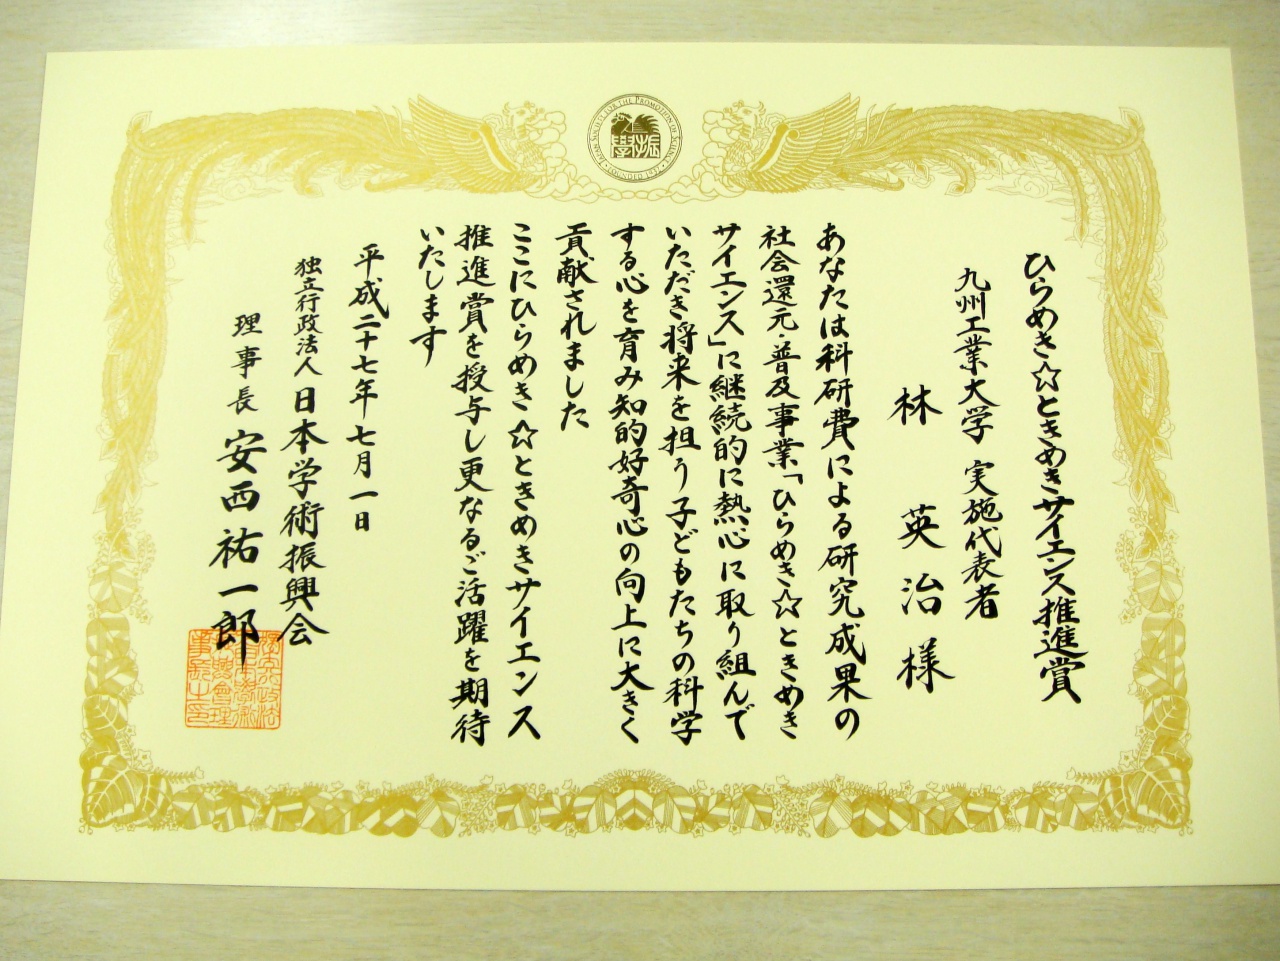 JAPAN SOCIETY FOR THE PROMOTION OF SCIENCE
FOUNDED 1932
ひらめき☆ときめきサイエンス推進賞
九州工業大学 実施代表者
林 英治様
あなたは科研費による研究成果の
社会還元・普及事業「ひらめき☆ときめき
サイエンス」に継続的に熱心に取り組んで
いただき将来を担う子どもたちの科学
する心を育み知的好奇心の向上に大きく
貢献されました
ここにひらめき☆ときめきサイエンス
推進賞を授与し更なるご活躍を期待
いたします
平成二十七年七月一日
独立行政法人日本学術振興会
理事長 安西祐一郎